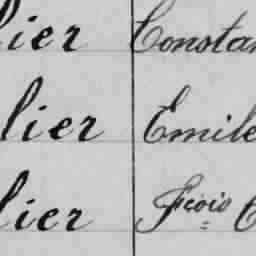 lier Constan
lier Emile
lier Fcois